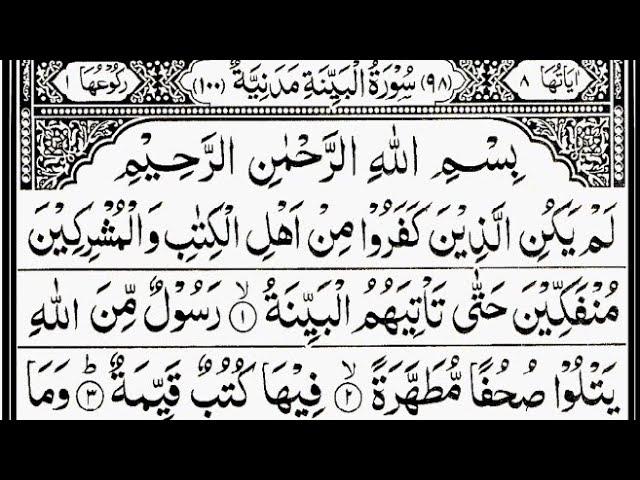 اٰيَاتُهَا ٨ (٩٨) سُوْرَةُ الْبَيِّنَةِ مَدَنِيَّةٌ (١٠٠) رُكُوْعُهَا ١
بِسْمِ اللهِ الرَّحْمٰنِ الرَّحِيْمِ
لَمْ يَكُنِ الَّذِيْنَ كَفَرُوْا مِنْ اَهْلِ الْكِتٰبِ وَالْمُشْرِكِيْنَ
مُنْفَكِّيْنَ حَتّٰى تَاْتِيَهُمُ الْبَيِّنَةُ ۙ‏ ١ رَسُوْلٌ مِّنَ اللهِ
يَتْلُوْا صُحُفًا مُّطَهَّرَةً ۙ ٢ فِيْهَا كُتُبٌ قَيِّمَةٌ ؕ ٣ وَمَا